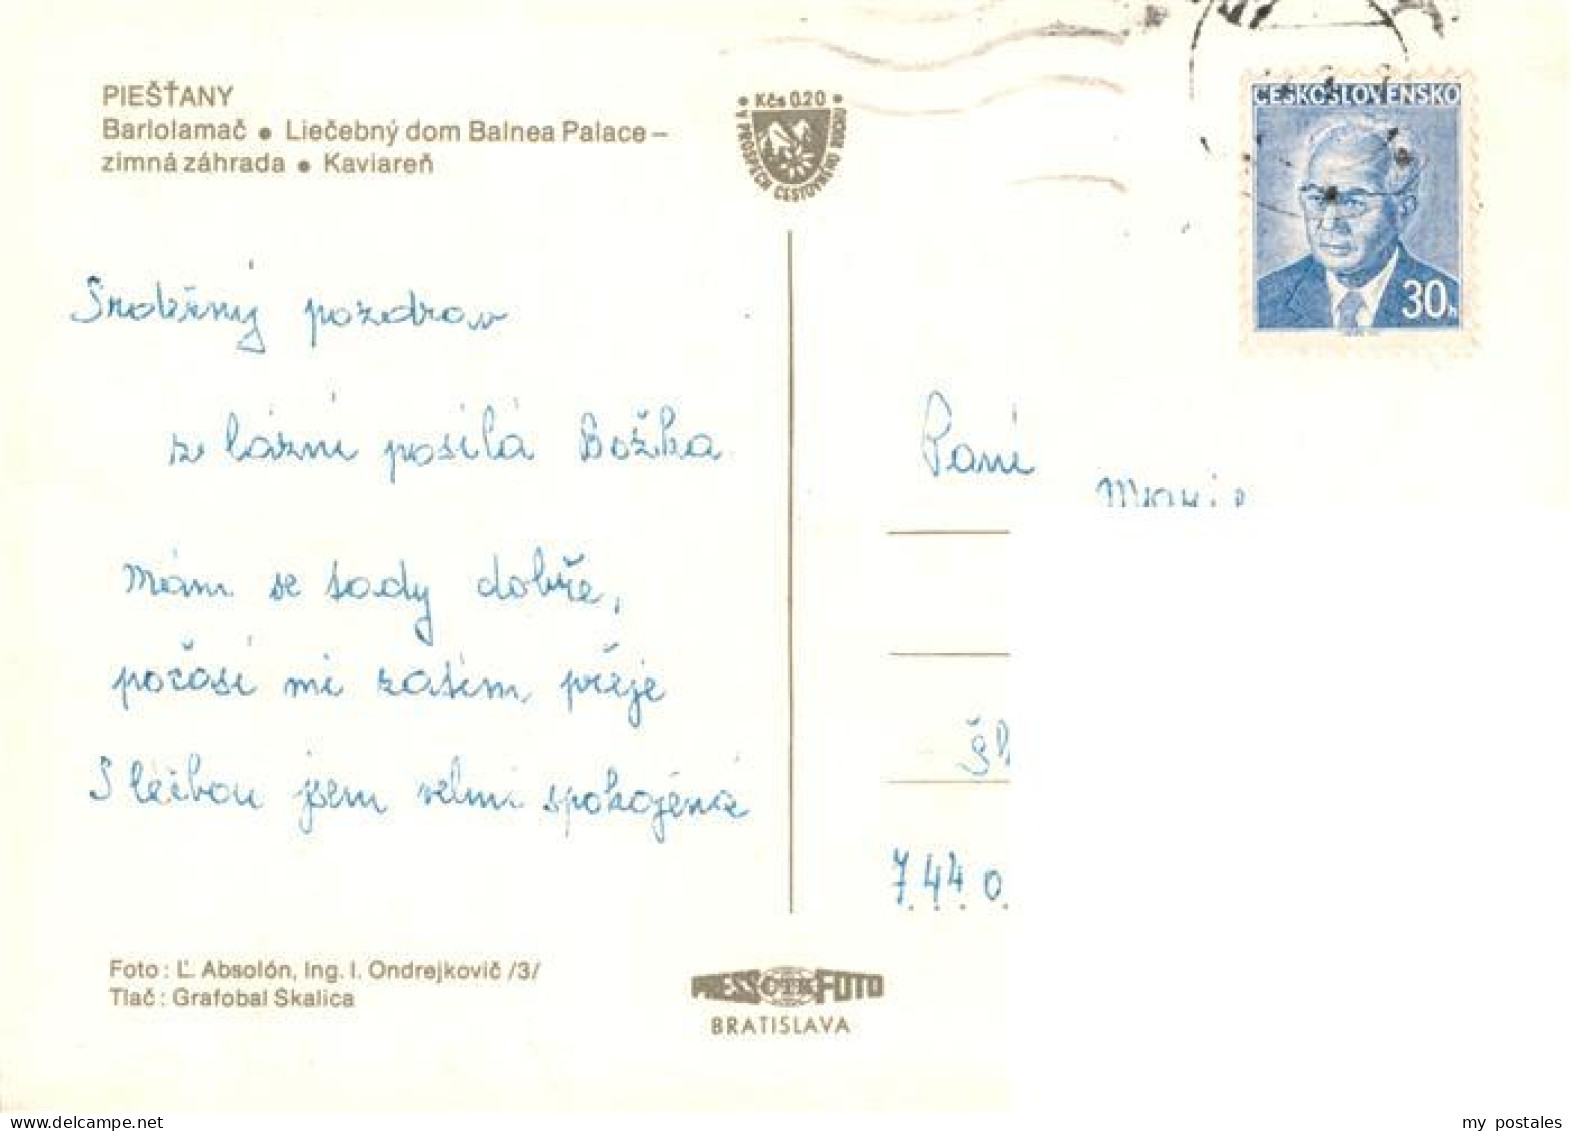 PIEŠŤANY
Barlolamač • Liečebný dom Balnea Palace –
zimná záhrada • Kaviareň
Kčs 0.20
V PROSPECH CESTOVNÉHO RUCHU
ČESKOSLOVENSKO
30h
Srdečný pozdrav
z lázní posílá Božka
Mám se tady dobře,
počasí mi zatím přeje
S léčbou jsem velmi spokojená
Paní
744 0
Foto: Ľ. Absolón, Ing. I. Ondrejkovič /3/
Tlač: Grafobal Skalica
PRESS ČTK FOTO
BRATISLAVA
my postales